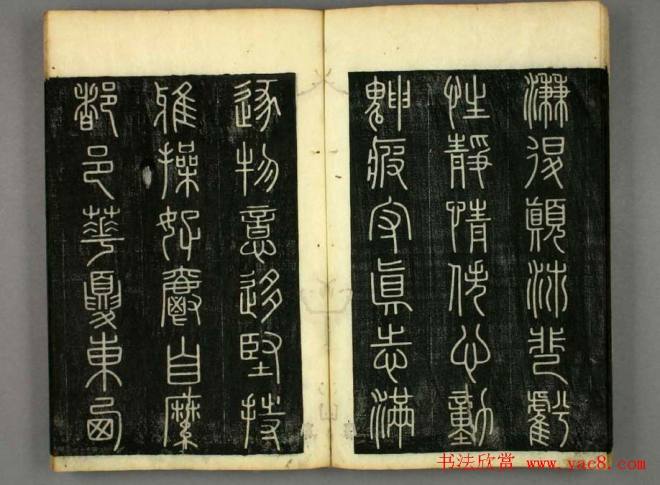 廉退顛沛匪虧
性靜情逸心動
神疲守真志滿
逐物意移堅持
雅操好爵自縻
都邑華夏東西
书法欣赏 www.yac8.com